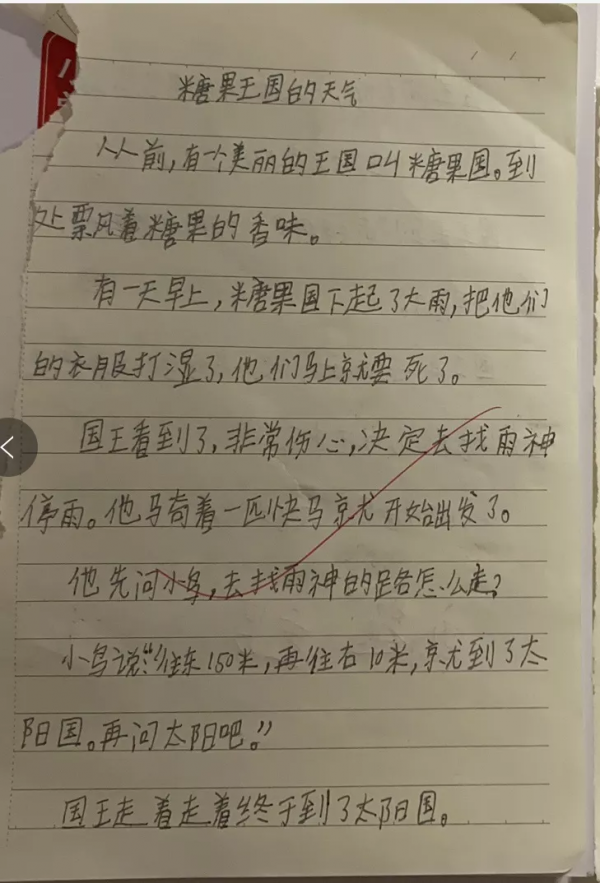 糖果王国的天气
从前，有一个美丽的王国叫糖果国。到
处飘着糖果的香味。
有一天早上，糖果国下起了大雨，把他们
的衣服打湿了，他们马上就要死了。
国王看到了，非常伤心，决定去找雨神
停雨。他骑着一匹快马就开始出发了。
他先问小鸟，去找雨神的路怎么走？
小鸟说：“往东150米，再往右10米，就到了太
阳国。再问太阳吧。”
国王走着走着终于到了太阳国。